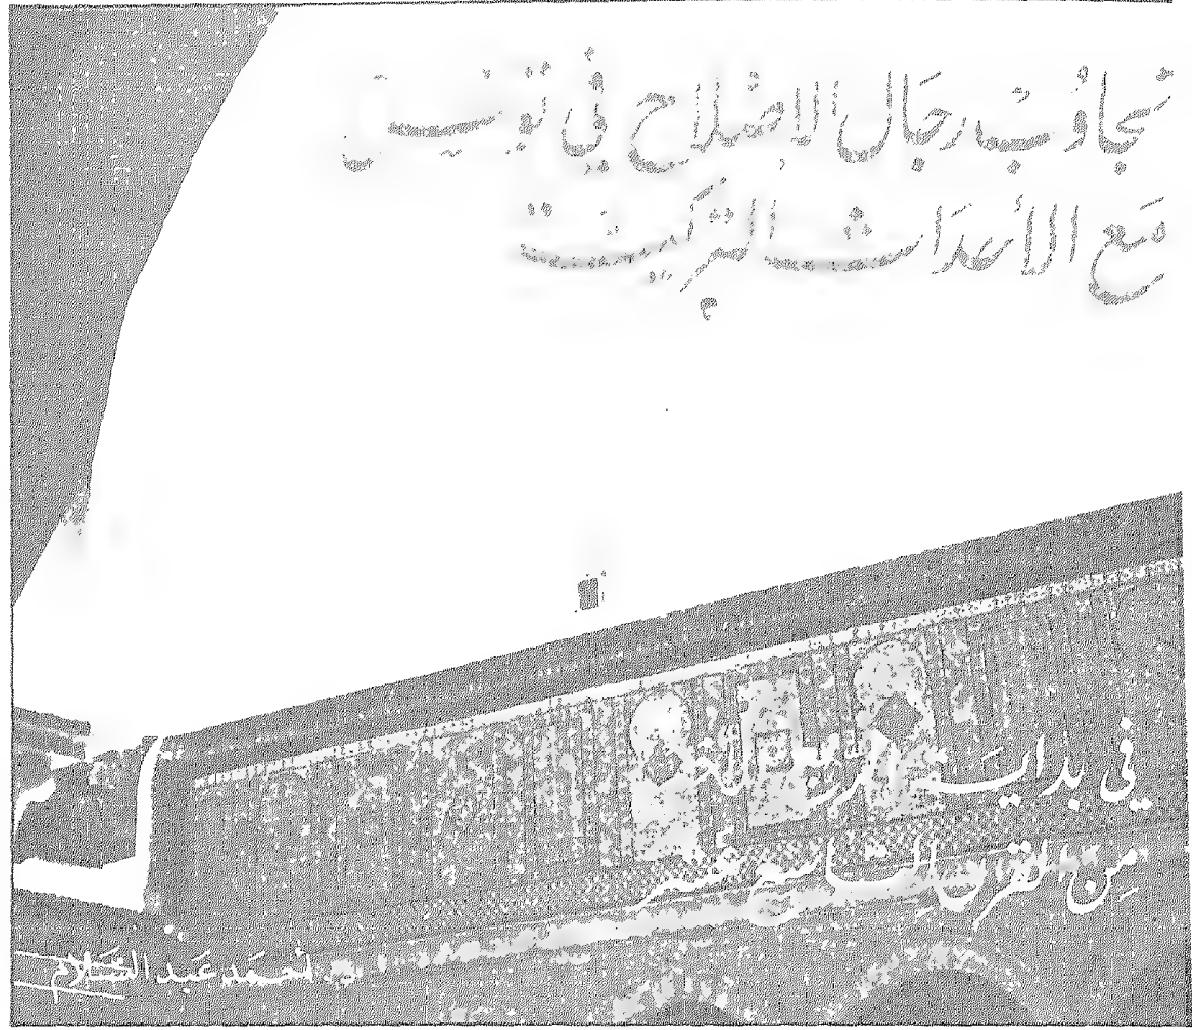 تجاوُب رجَال الاصْلاح في تونس
مَع الأحدَاث التركية
في بدايَة
مِن القرن التاسع عشر
أحمَد عَبد السَّلام